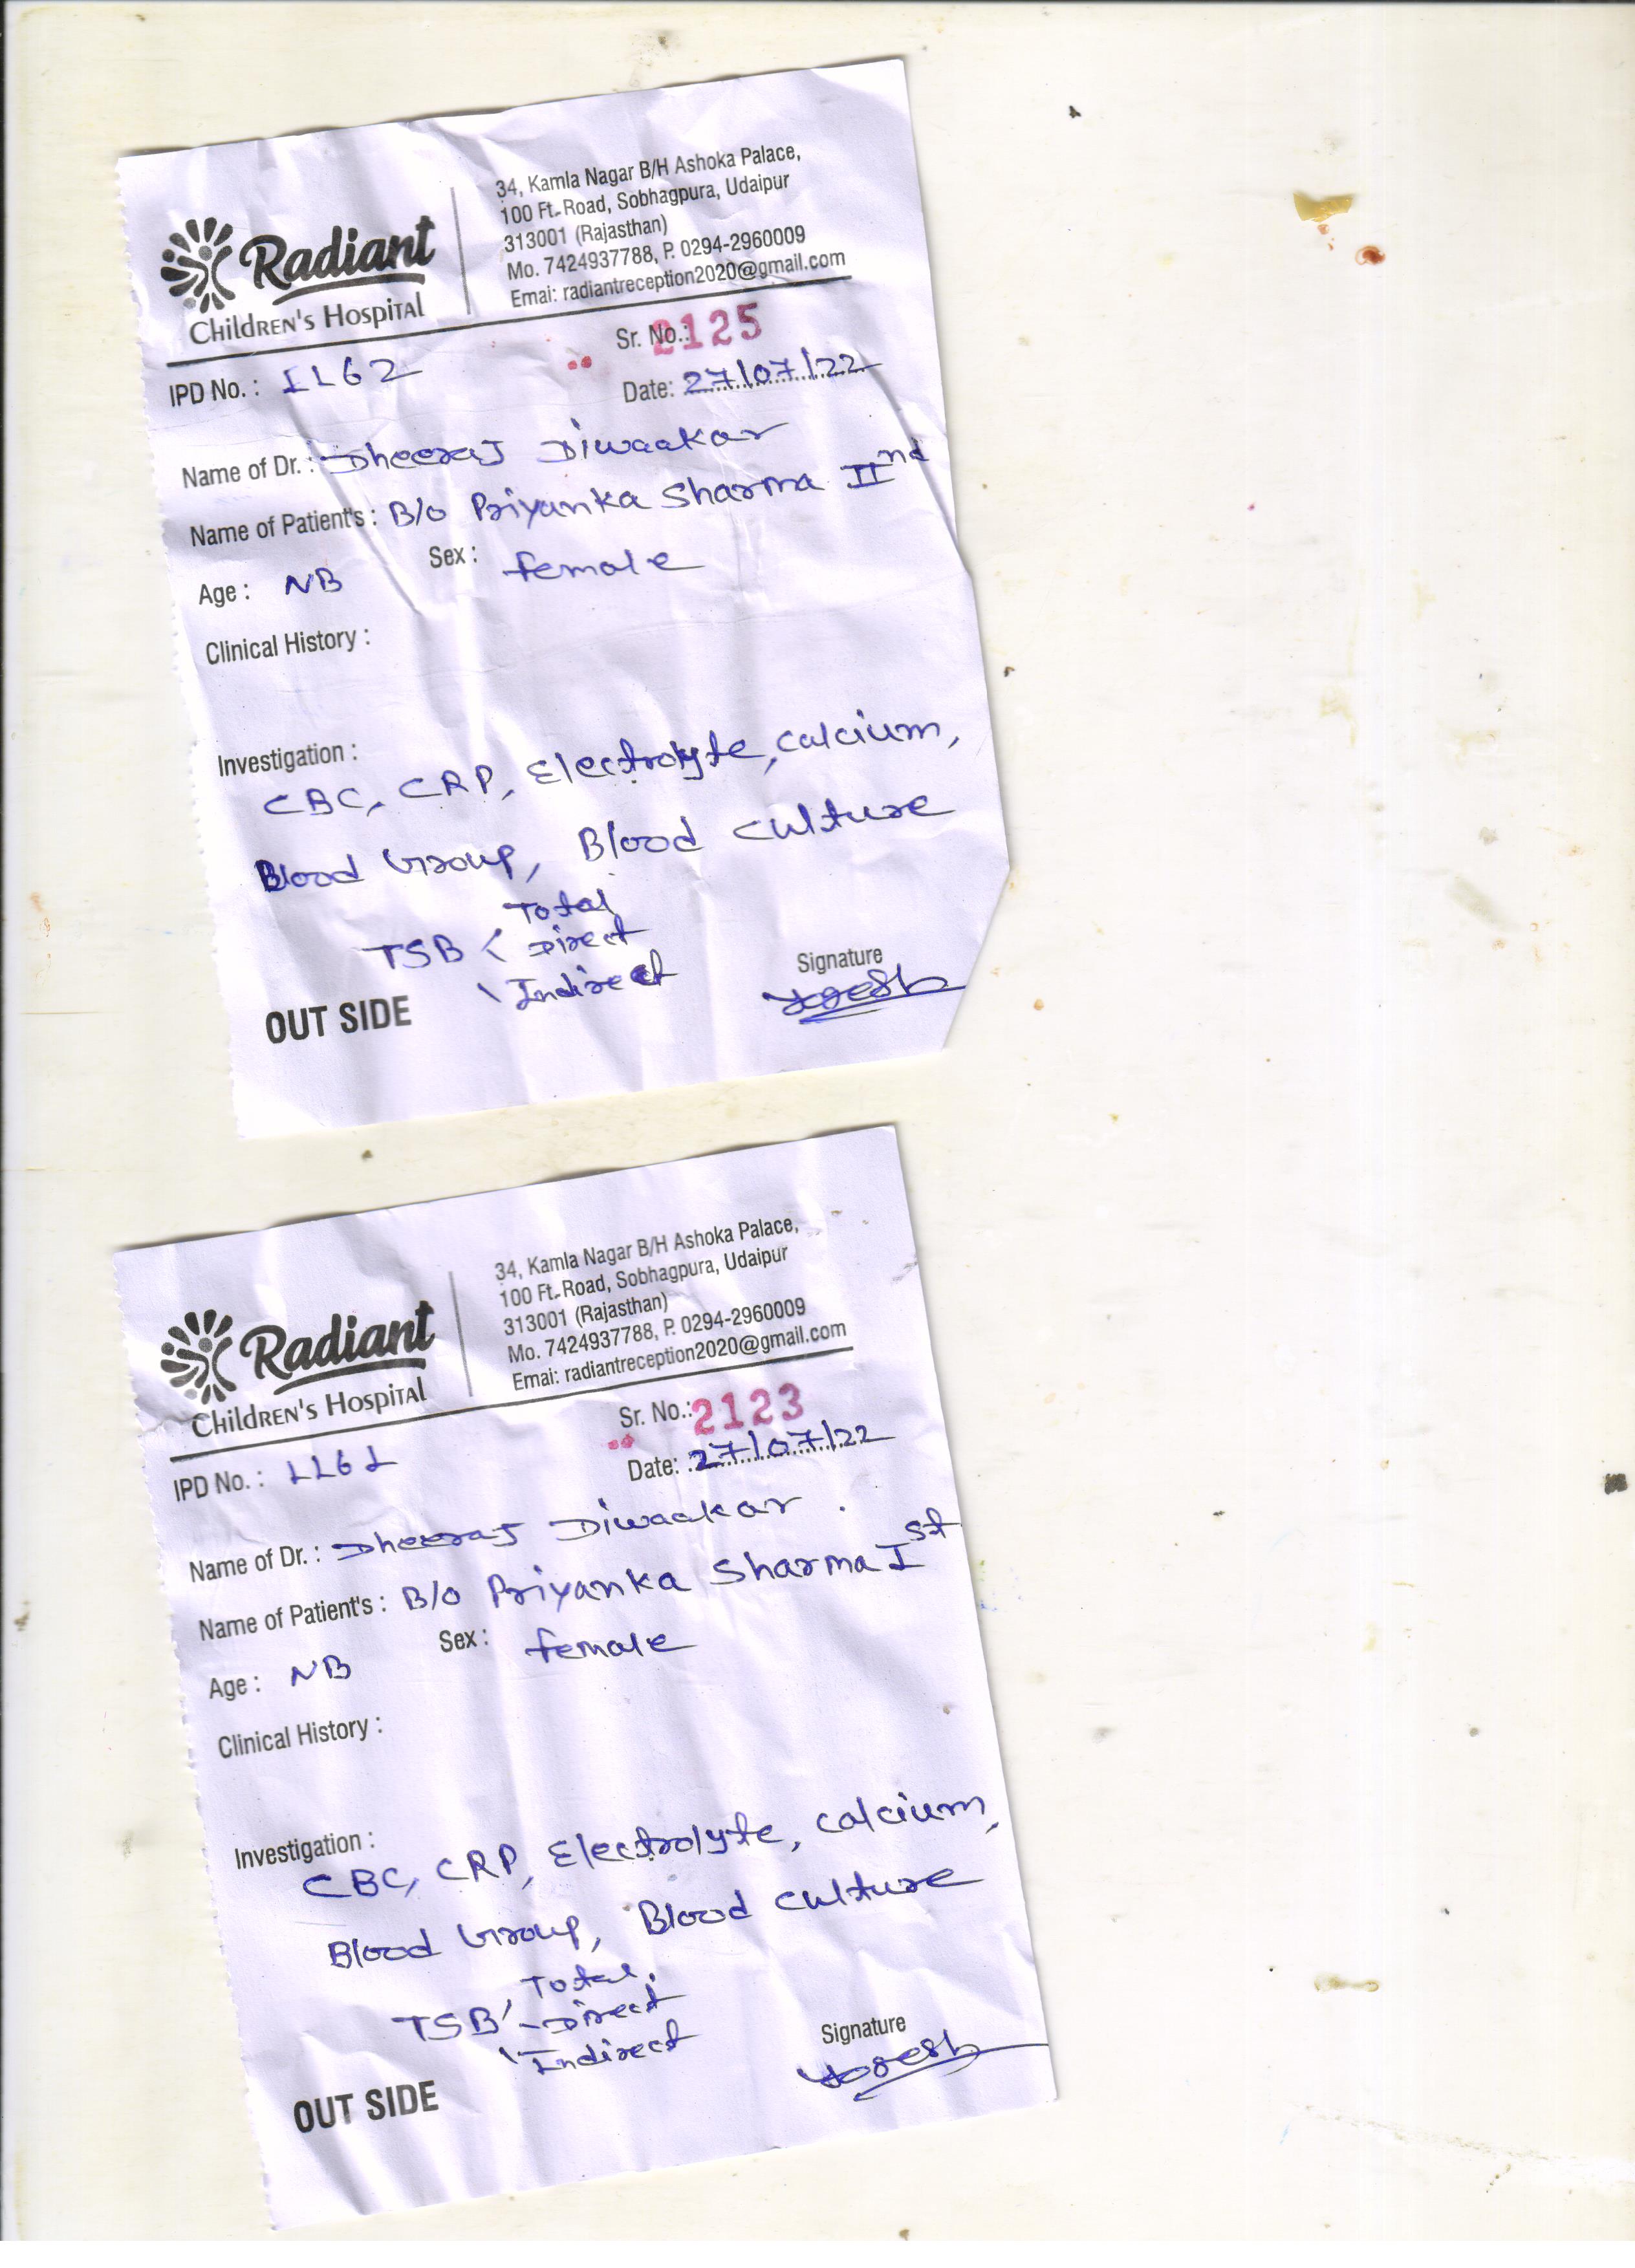 Radiant
Children's Hospital
34, Kamla Nagar B/H Ashoka Palace,
100 Ft. Road, Sobhagpura, Udaipur
313001 (Rajasthan)
Mo. 7424937788, P. 0294-2960009
Emai: radiantreception2020@gmail.com
Sr. No.: 2125
IPD No.: 1162
Date: 27/07/22
Name of Dr.: Dheeraj Diwaakar
Name of Patient's: B/o Priyanka Sharma IInd
Age: NB Sex: female
Clinical History:
Investigation:
CBC, CRP, Electrolyte, calcium,
Blood Group, Blood culture
Total
TSB < Direct
Indirect
Signature
Yogesh
OUT SIDE
Radiant
Children's Hospital
34, Kamla Nagar B/H Ashoka Palace,
100 Ft. Road, Sobhagpura, Udaipur
313001 (Rajasthan)
Mo. 7424937788, P. 0294-2960009
Emai: radiantreception2020@gmail.com
Sr. No.: 2123
IPD No.: 1161
Date: 27/07/22
Name of Dr.: Dheeraj Diwaakar
Name of Patient's: B/o Priyanka Sharma Ist
Age: NB Sex: female
Clinical History:
Investigation:
CBC, CRP, Electrolyte, calcium,
Blood Group, Blood culture
Total
TSB - Direct
Indirect
Signature
Yogesh
OUT SIDE